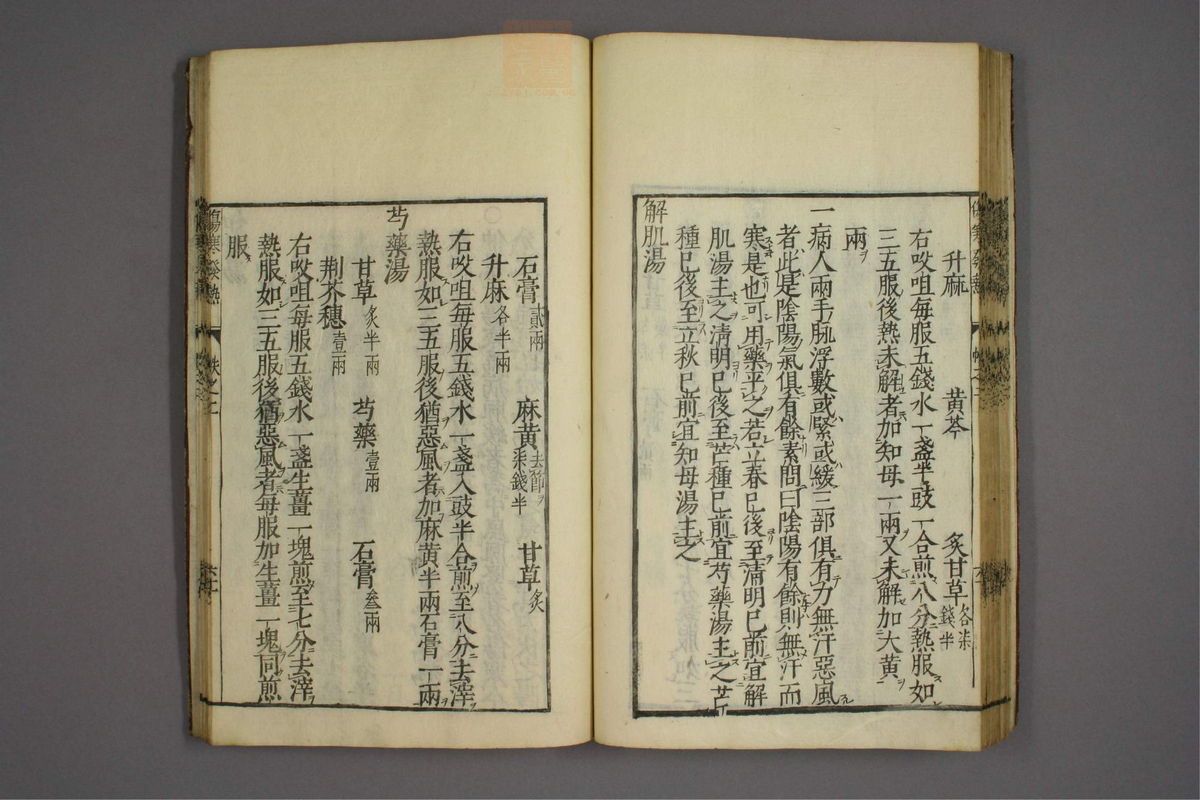 升麻 黄芩 炙甘草各柒錢半
右㕮咀每服五錢水一盞半豉一合煎八分熱服如
三五服後熱未解者加知母一兩又未解加大黄
兩
一病人兩手脉浮數或緊或緩三部俱有力無汗惡風
者此是陰陽氣俱有餘素問曰陰陽有餘則無汗而
寒是也可用藥平之若立春已後至清明已前宜解
肌湯主之清明已後至芒種已前宜芍藥湯主之芒
種已後至立秋已前宜知母湯主之
解肌湯
石膏貳兩 麻黄去節柒錢半 甘草炙
升麻各半兩
右㕮咀每服五錢水一盞入豉半合煎至八分去滓
熱服如三五服後猶惡風者加麻黄半兩石膏一兩
芍藥湯
甘草炙半兩 芍藥壹兩 石膏叁兩
荆芥穗壹兩
右㕮咀每服五錢水一盞生薑一塊煎至七分去滓
熱服如三五服後猶惡風者每服加生薑一塊同煎
服
傷寒發熱